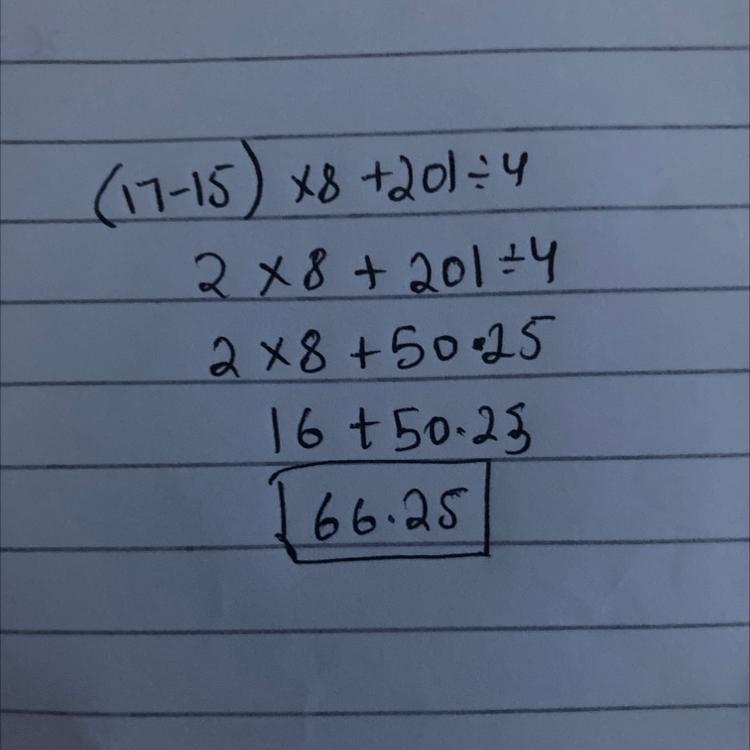 (17-15) ×8 +201÷4
2 ×8 + 201÷4
2 ×8 +50.25
16 +50.25
66.25